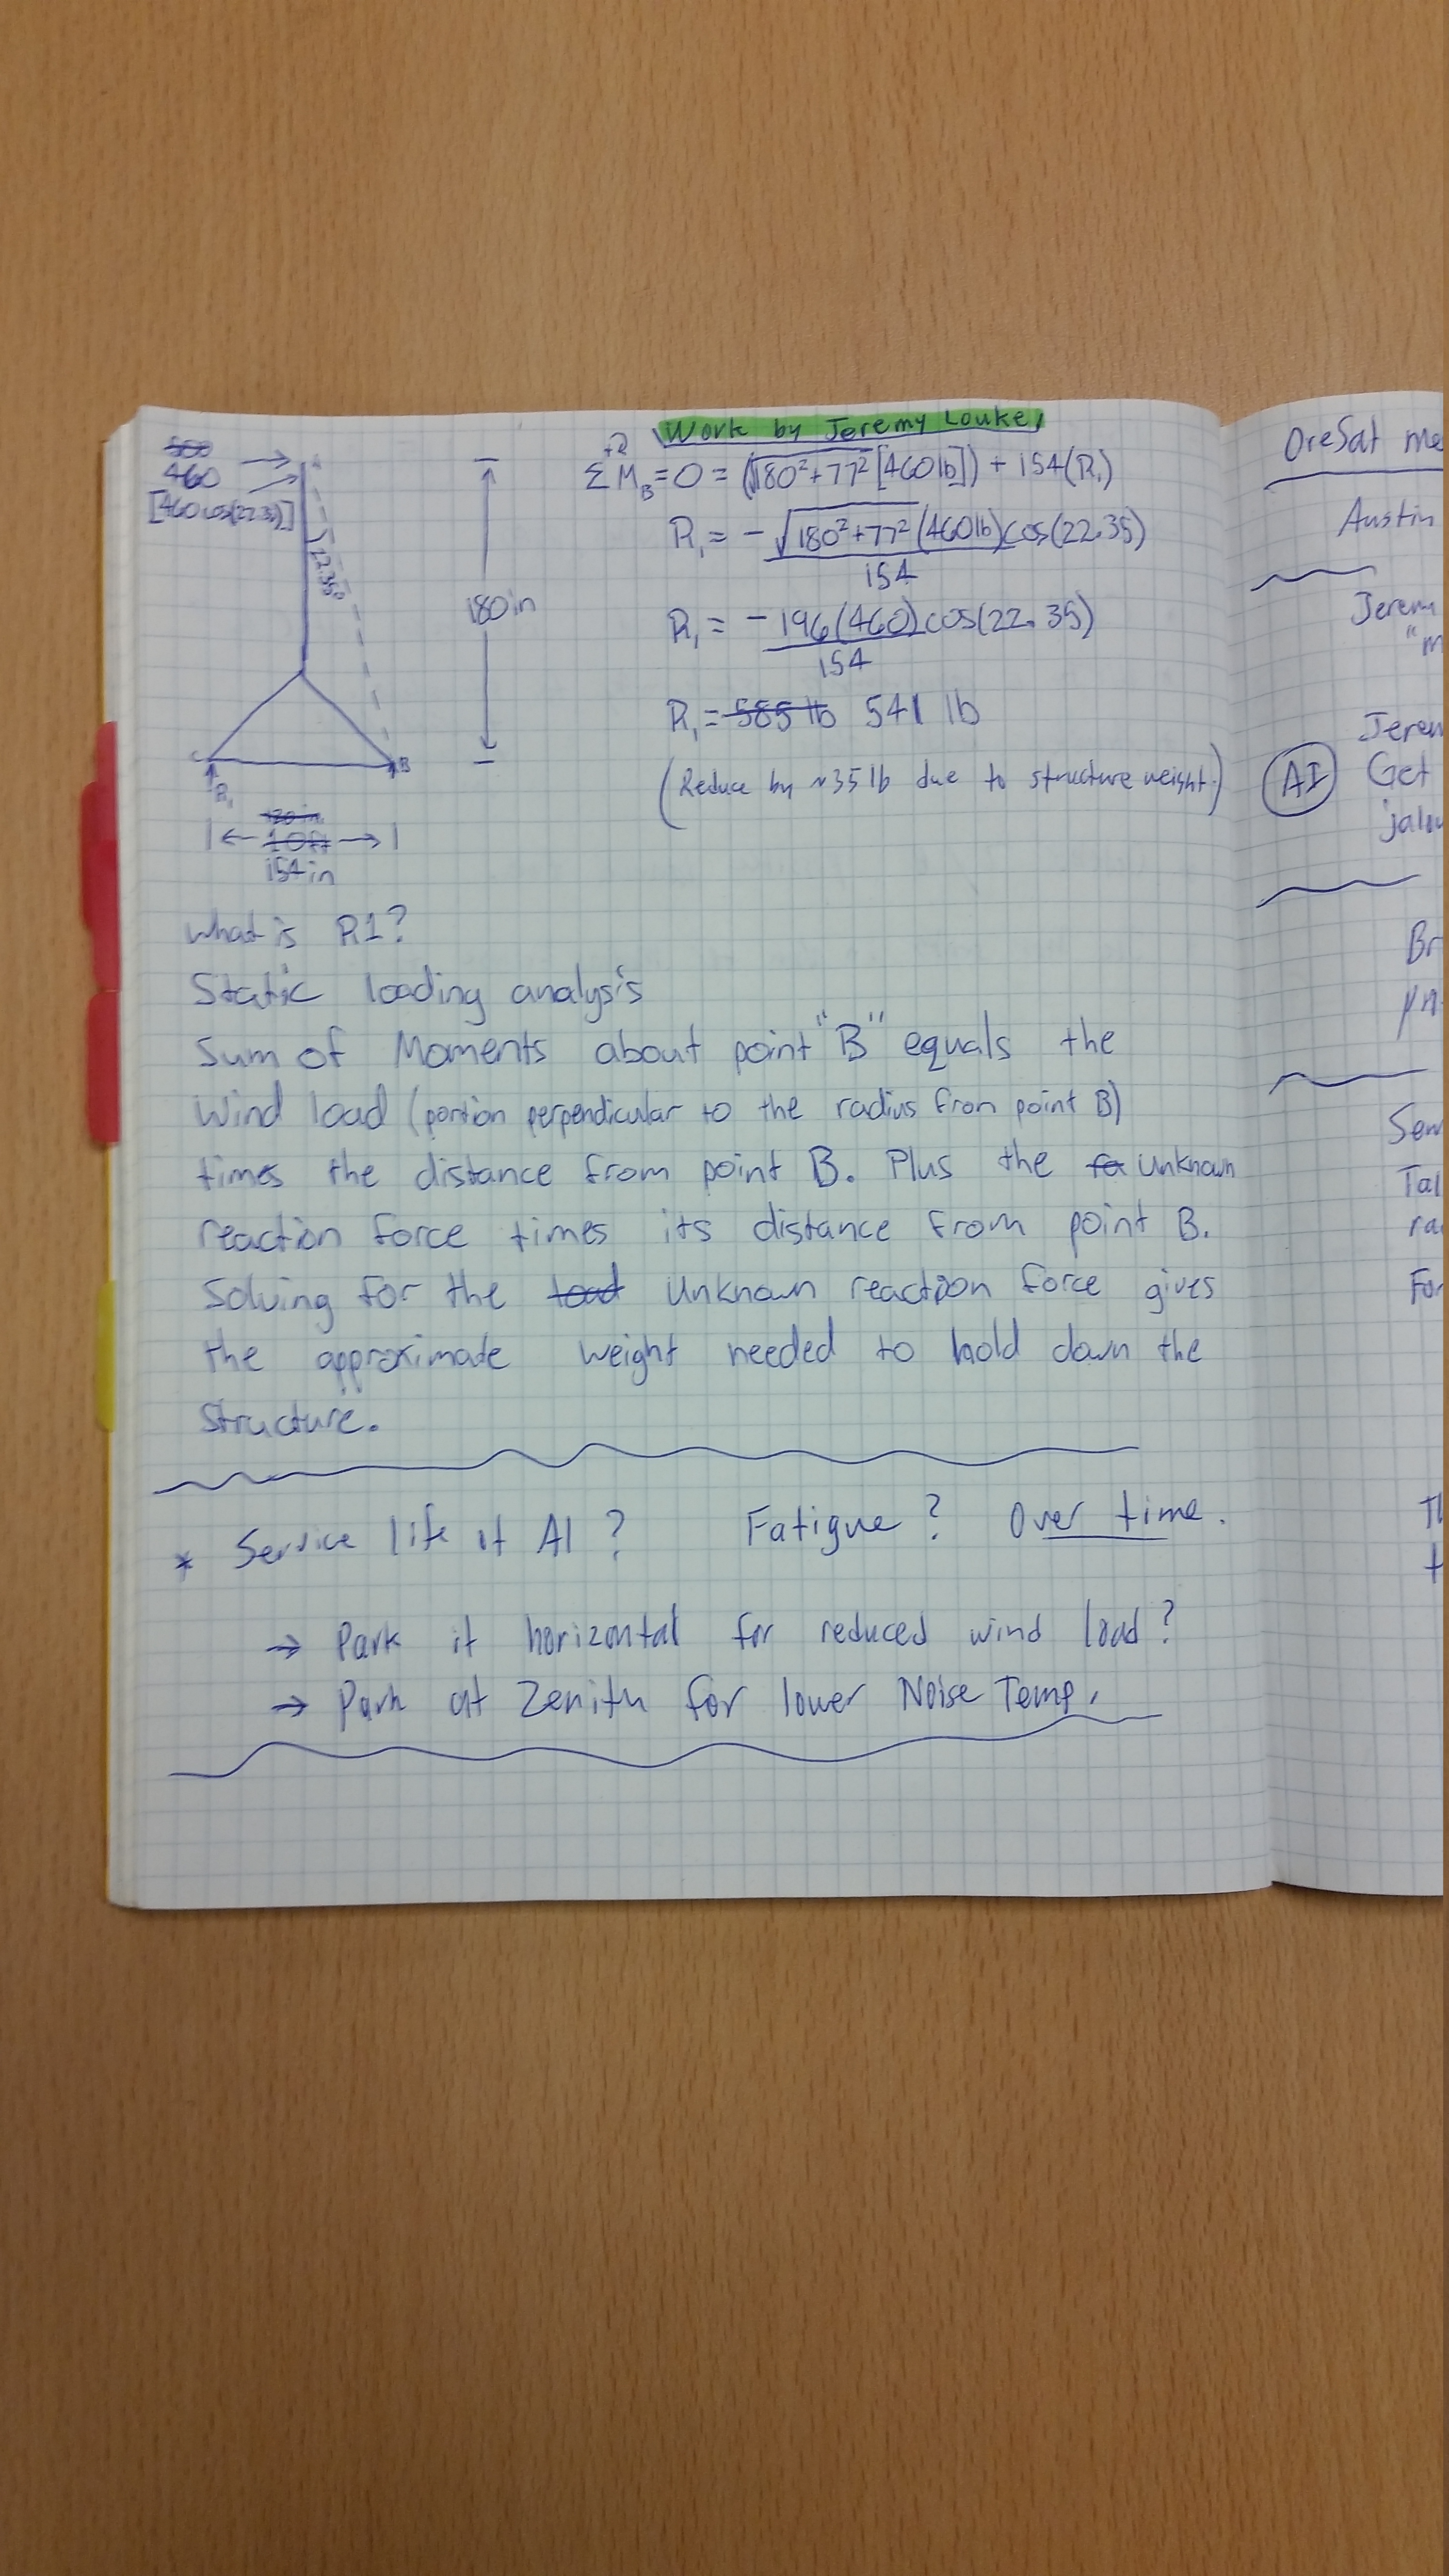 Work by Jeremy Louke
500
460
[460cos(22.35)]
22.35°
180in
C
B
R₁
120in
10ft
154in
ΣM_B=0=(√180²+77²[460lb])+154(R₁)
R₁=-√180²+77²(460lb)cos(22.35)
154
R₁=-196(460)cos(22.35)
154
R₁=585 lb 541 lb
(Reduce by ~35lb due to structure weight.)
What is R1?
Static loading analysis
Sum of Moments about point "B" equals the
Wind load (portion perpendicular to the radius from point B)
times the distance from point B. Plus the fo Unknown
reaction force times its distance from point B.
Solving for the load Unknown reaction force gives
the approximate weight needed to hold down the
structure.
* Service life of Al? Fatigue? Over time.
→ Park it horizontal for reduced wind load?
→ Park at Zenith for lower Noise Temp.
OreSat me
Austin
Jerem
"m
Jerem
AI Get
jalou
Br
Sem
Tal
ra
For
Th
t